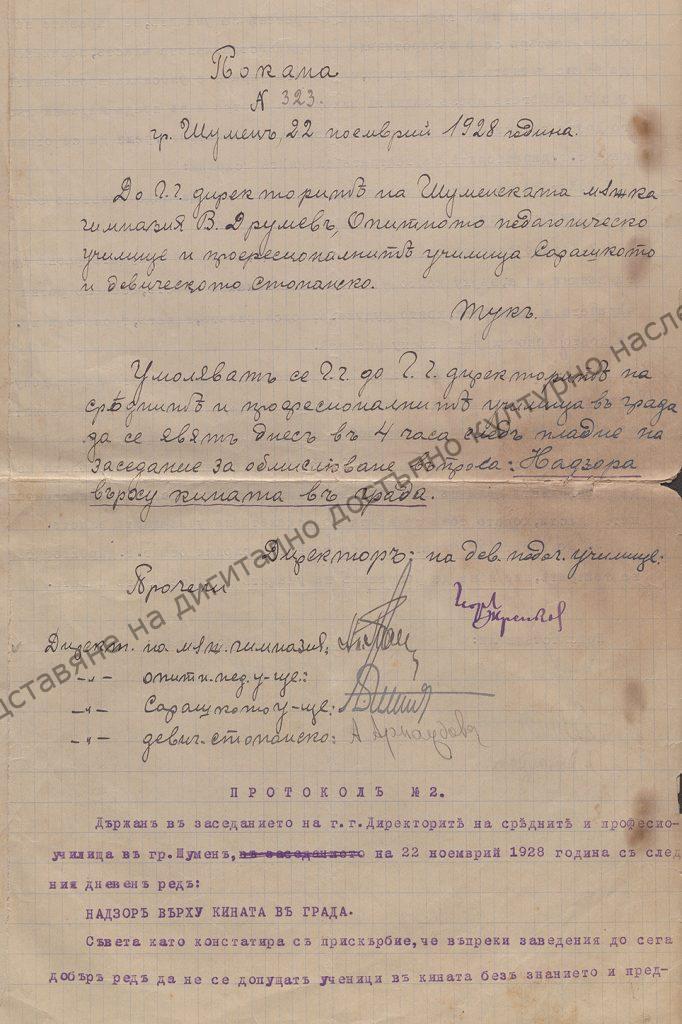 Покана
№ 323.
гр. Шуменъ, 22 ноемврий 1928 година.
До Г.г. директоритѣ на Шуменската мѫжка
гимназия В. Друмевъ, Опитното педагогическо
училище и професионалнитѣ училища Сарашкото
и девическото стопанско.
Тукъ.
Умоляватъ се Г.г. до Г.г. директоритѣ на
срѣднитѣ и професионалнитѣ училища въ града
да се явятъ днесъ въ 4 часа следъ пладне на
заседание за обмисляване въпроса: Надзора
върху кината въ града.
Директоръ: на дев. педог. училище:
Прочели
Директ. на мѫж. гимназия:
-"- опитн. пед. у-ще:
-"- Сарашкото у-ще:
-"- девич. стопанско: А Арнаудова
ПРОТОКОЛЪ №2.
Държанъ въ заседанието на г.г.Директоритѣ на срѣднитѣ и професио-
училища въ гр.Шуменъ, въ заседанието на 22 ноемврий 1928 година съ след
ния дневенъ редъ:
НАДЗОРЪ ВЪРХУ КИНАТА ВЪ ГРАДА.
Съвета като констатира съ прискърбие,че въпреки заведения до сега
добъръ редъ да не се допущатъ ученици въ кината безъ знанието и пред-
дставяне на дигитално достъпно културно насле